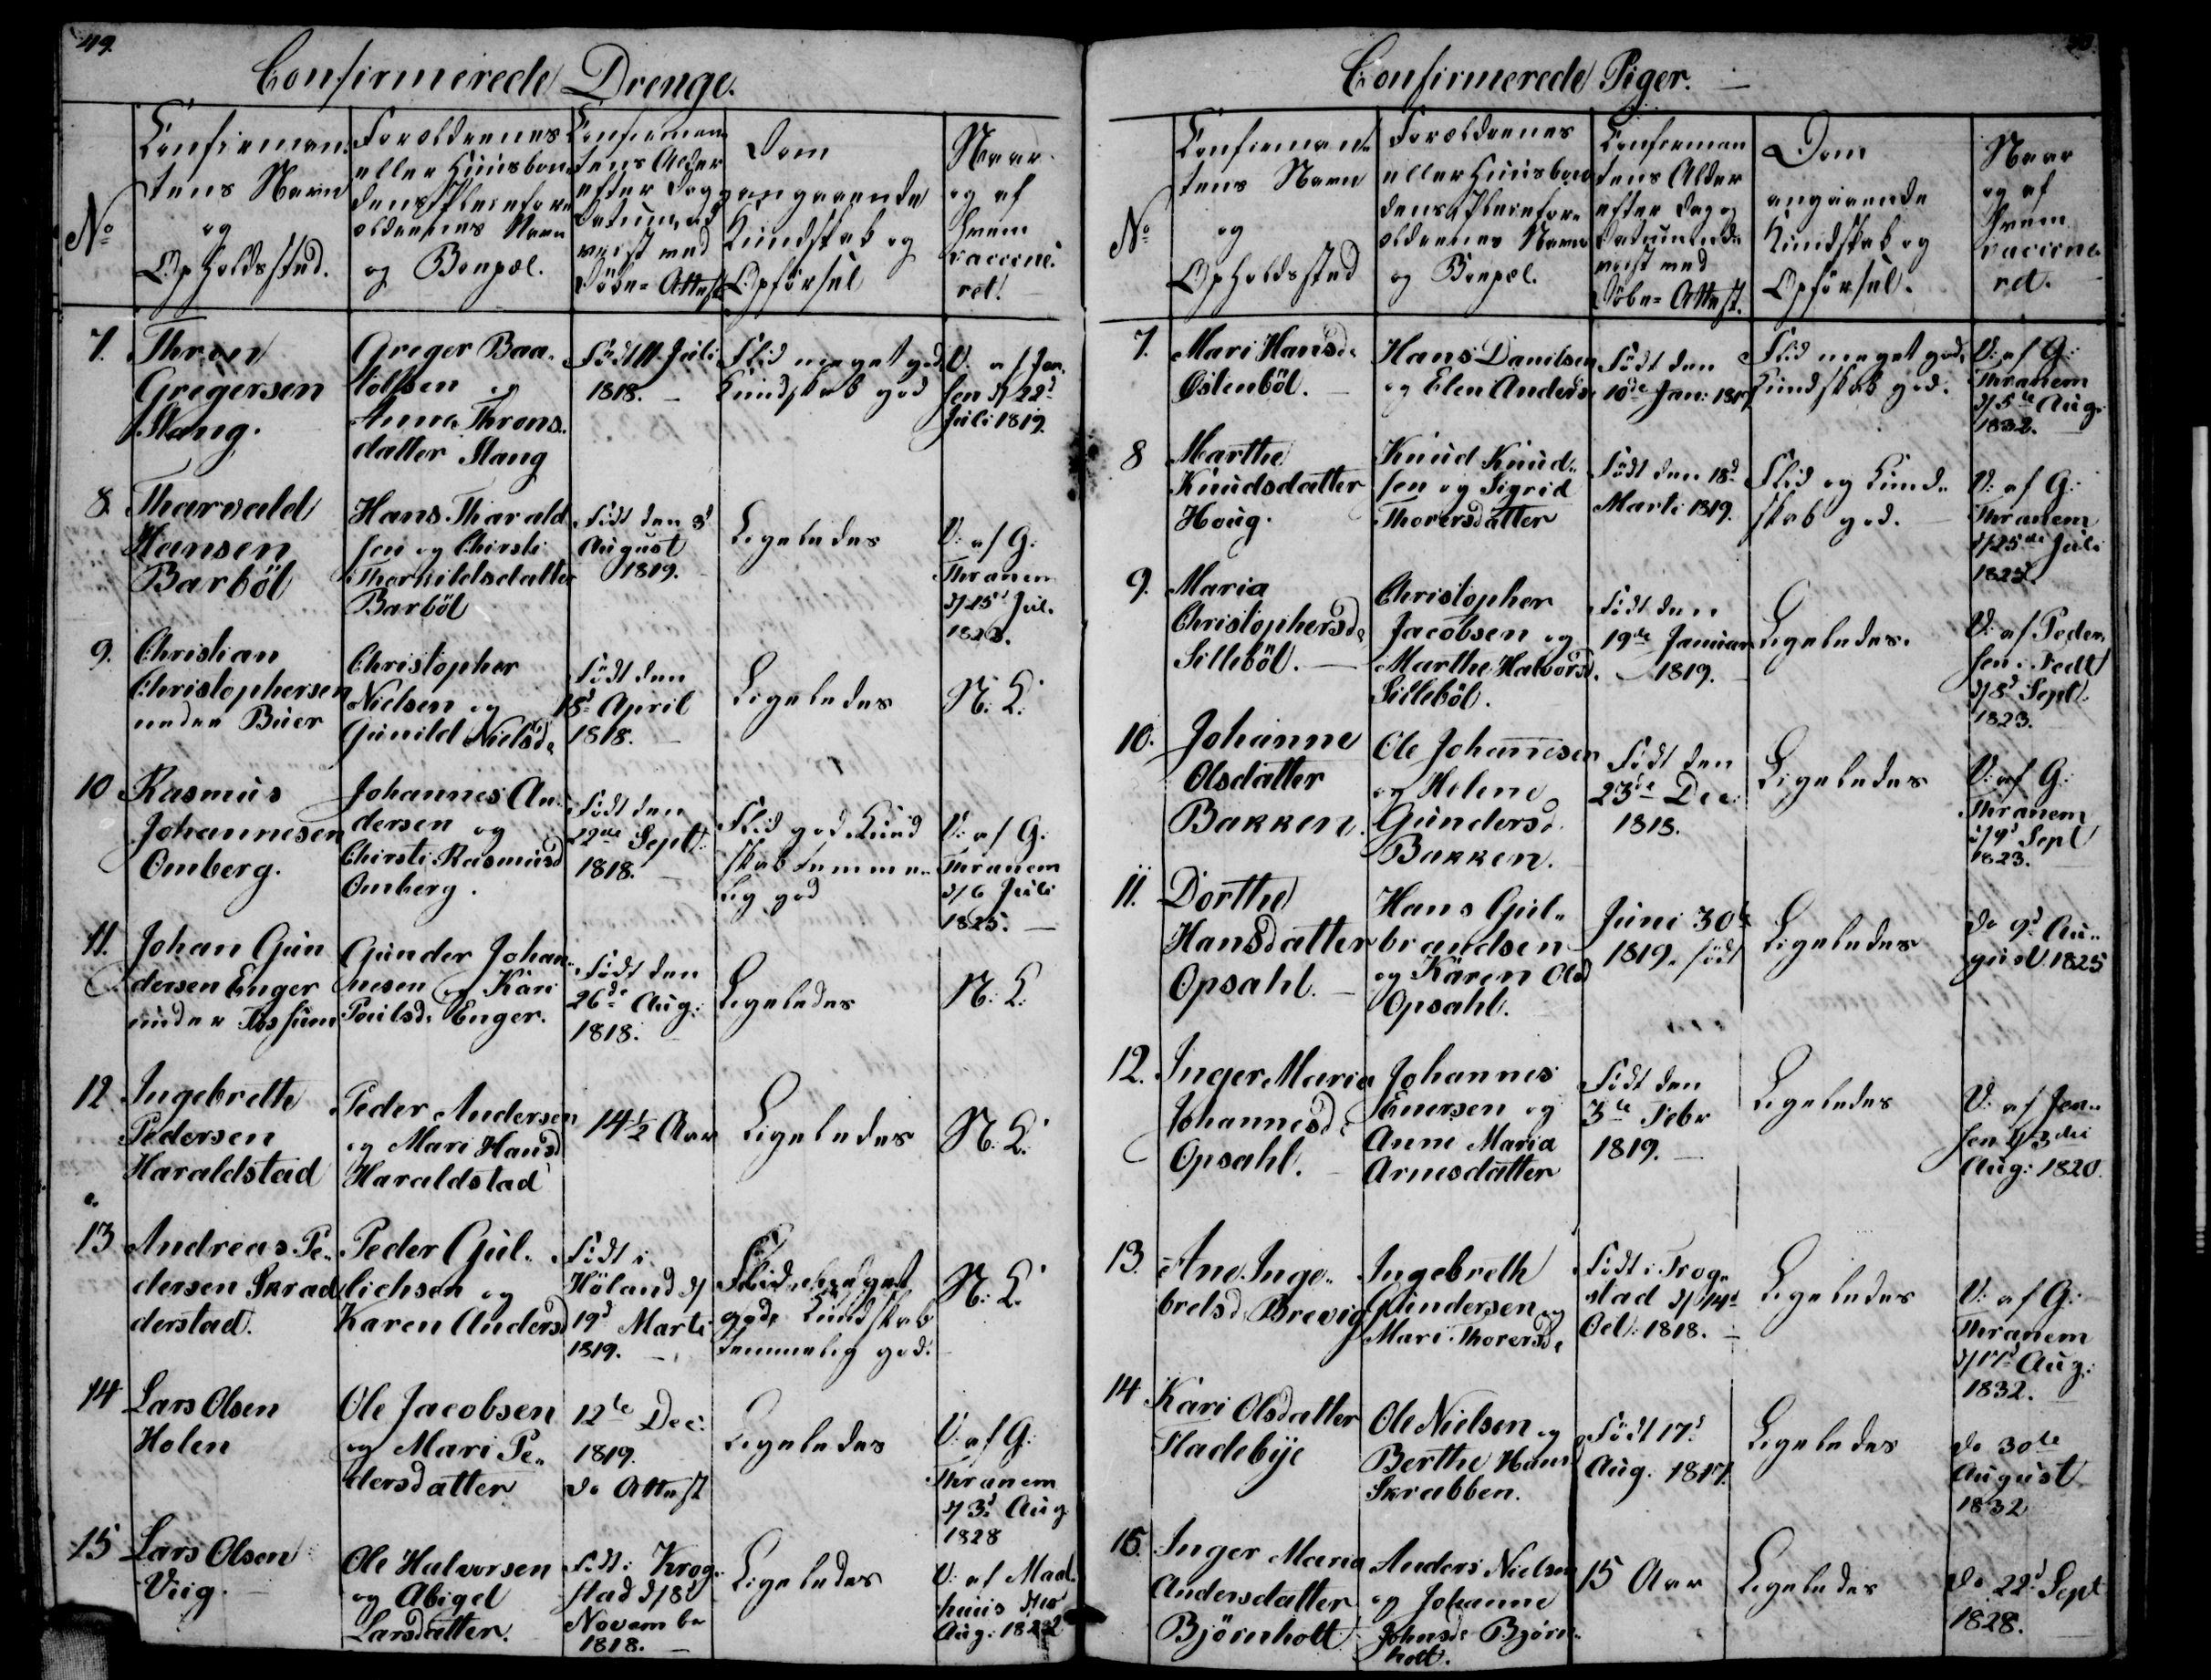 49.
Confirmerede Drenge.
No
Confirman-
tens Navn
og
Opholdssted.
Forældrenes
eller Huusbon-
dens Pleiefor-
ældrenes Navn
og Bopæl.
Confirman-
tens Alder
efter Dag
Datum, ud
viist med
Döbe-Attest
Dom
angaaende
Kundskab og
Opförsel
Naar
og af
hvem
vaccine-
ret.
7. Thron
Gregersen
Slang.
Greger Baa-
tolfsen og
Anne Throns-
datter Slang
Födt 11 Juli
1818. —
Flid meget god
Kundskab god
V. af Jen-
sen d/ 22d
Juli 1819.
8. Tharvald
Hansen
Barböl
Hans Tharald
sen og Chirsti
Thorkildsdatter
Barböl
Födt den 3d
August
1819.
Ligeledes
V: af G:
Thranem
d/25d Jul.
1823.
9. Christian
Christophersen
under Buer
Christopher
Nielsen og
Gunild Nielsd.
Födt den
18d April
1818. —
Ligeledes
N. K.
10 Rasmus
Johannesen
Omberg.
Johannes An-
dersen og
Chirsti Rasmusd
Omberg.
Födt den
22de Sept:
1818. —
Flid god Kund
skab temme-
lig god
V: af G:
Thranem
d/6 Juli
1825. —
11. Johan Gun
dersen Enger
under Fossum
Gunder Johan-
nesen og Kari
Paulsd. Enger.
Födt den
26de Aug:
1818.
Ligeledes
N. K.
12 Ingebreth
Pedersen
Haraldstad
Peder Andersen
og Mari Hansd
Haraldstad
14½ Aar
Ligeledes
N. K.
13 Andreas Pe-
dersen Skrad
derstad.
Peder Gul-
lichsen og
Karen Andersd
Födt i
Höland d/
19d Marti
1819. —
Flid meget
god, Kundskab
temmelig god.
N. K.
14 Lars Olsen
Holen
Ole Jacobsen
og Mari Pe-
dersdatter
12te Dec:
1819.
do Attest
Ligeledes
V: af G:
Thranem
d/ 3d Aug
1828
15 Lars Olsen
Viig. —
Ole Halvorsen
og Abigel
Larsdatter.
Födt i Krog-
stad d/8d
Novembr
1818. —
Ligeledes
V: af Maal-
huus d/10
Aug: 1822
Confirmerede Piger. —
No
Confirman-
tens Navn
og
Opholdssted
Forældrenes
eller Huusbon
dens Pleiefor-
ældrenes Navn
og Bopæl.
Confirman
tens Alder
efter Dag og
Datum ud-
viist med
Döbe-Attest.
Dom
angaaende
Kundskab og
Opförsel.
Naar
og af
hvem
vaccine-
ret.
7. Mari Hansd.
Östenböl. —
Hans Danilsen
og Elen Andersd.
Födt den
10de Jan: 1819
Flid meget god,
Kundskab god.
V: af G:
Thranem
d/5te Aug:
1832.
8 Marthe
Knudsdatter
Houg.
Knud Knud-
sen og Sigrid
Thorersdatter
Födt den 18d
Marti 1819.
Flid og Kund-
skab god.
V: af G:
Thranem
d/25de Juli
1825.
9. Maria
Christophersd.
Silleböl. —
Christopher
Jacobsen og
Marthe Halvorsd.
Silleböl.
Födt den
19de Januar
1819. —
Ligeledes.
V: af Peder-
sen. Fedt
d/8d Sept.
1823.
10. Johanne
Olsdatter
Bakken.
Ole Johannesen
og Helene
Gundersd.
Bakken.
Födt den
23de Dec:
1818.
Ligeledes
V: af G:
Thranem
d/9d Sept
1823.
11. Dorthe
Hansdatter
Opsahl. —
Hans Gul-
brandsen
og Karen Olsd
Opsahl.
Juni 30te
1819. födt
Ligeledes
do 9d Au-
gust 1825
12. Inger Maria
Johannesd.
Opsahl. —
Johannes
Enersen og
Anne Maria
Arnesdatter
Födt den
3te Febr
1819. —
Ligeledes
V: af Jen-
sen d/3die
Aug: 1820
13. Ane Inge-
bretsd. Brevig
Ingebreth
Gundersen og
Mari Thorersd.
Födt i Trog-
stad d/14d
Oct: 1818. —
Ligeledes
V: af G:
Thranem
d/17d Aug:
1832.
14 Kari Olsdatter
Hadebye
Ole Nielsen og
Berthe Hansd
Skrabben.
Födt 17d
Aug. 1817.
Ligeledes
do 30te
August
1832
15. Inger Maria
Andersdatter
Björnholt
Anders Nielsen
og Johanne
Johnsd. Bjørn-
holt.
15 Aar
Ligeledes
do 22d Sept
1828.